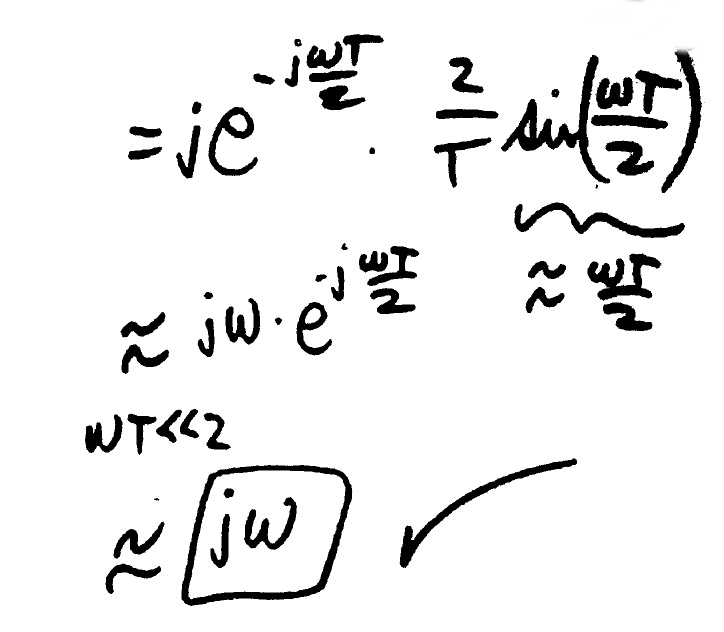 = j e^{-jωT/2} · 2/T sin(ωT/2)
≈ ωT/2
≈ jω · e^{-jωT/2}
ωT << 2
≈ jω ✓